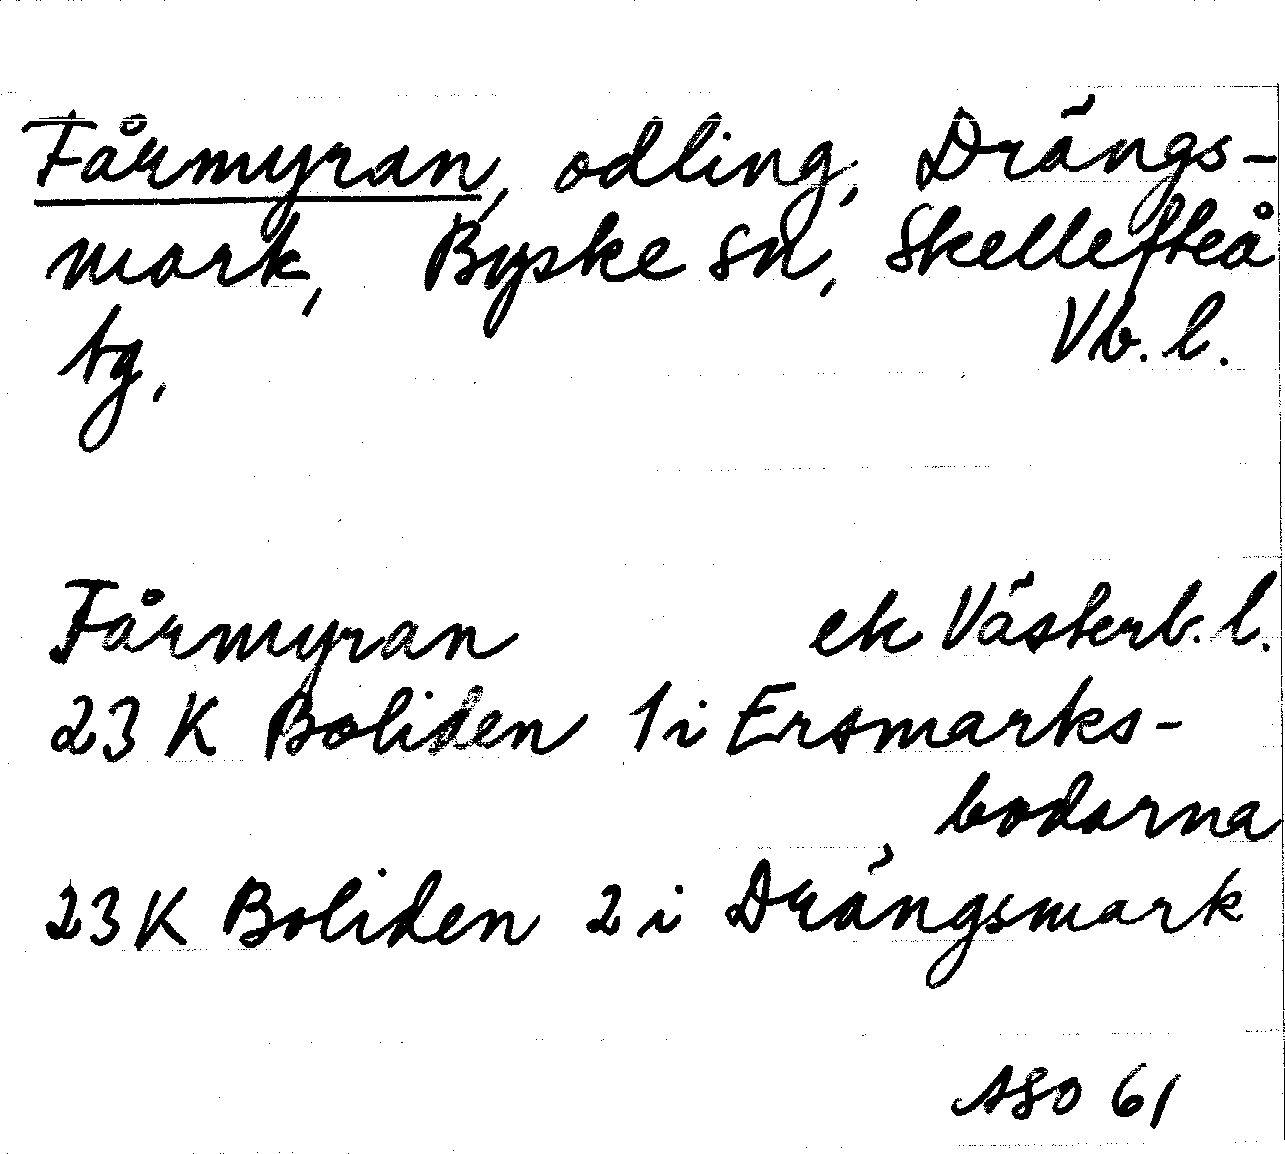 Fårmyran, odling, Drängs-
mark, Byske sn, Skellefteå
tg. Vb. l.
Fårmyran ek Västerb. l.
23 K Boliden 1 i Ersmarks-
bodarna
23 K Boliden 2 i Drängsmark
ASO 61